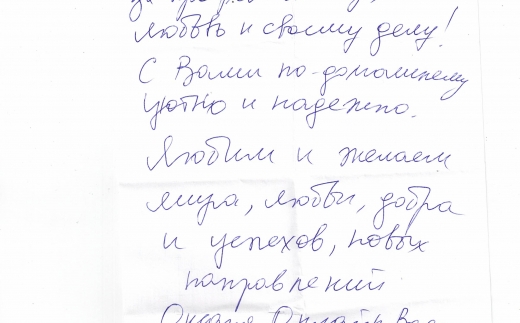 за
любовь к своему делу!
С Вами по-домашнему
уютно и надежно.
Любим и желаем
мира, любви, добра
и успехов, новых
направлений
Оксана